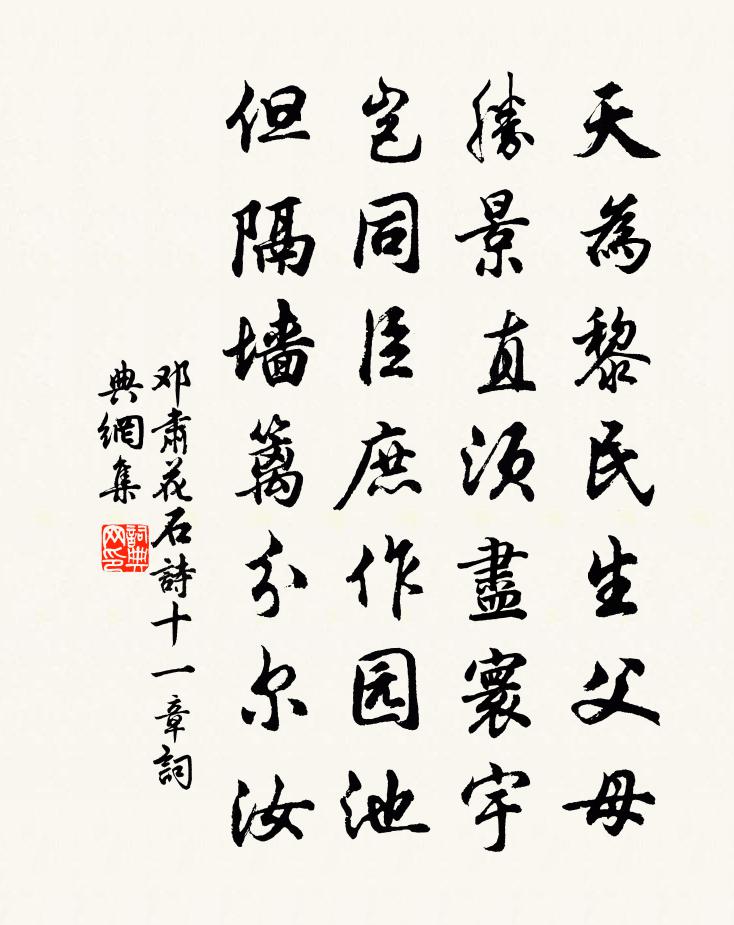 天為黎民生父母
勝景直須盡寰宇
岂同臣庶作园池
但隔墙篱分尔汝
邓肅花石詩十一章詞
典網集
詞典
网印